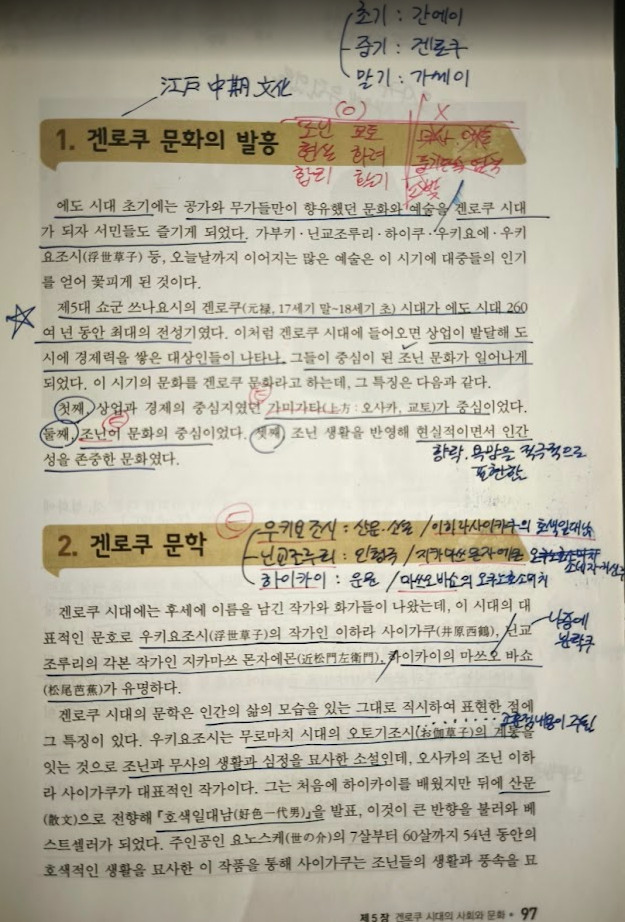 초기 : 간에이
중기 : 겐로쿠
말기 : 가세이
江戸 中期 文化
(O) X
조닌 교토 무사 에도
현실 화려
합리 활기
1. 겐로쿠 문화의 발흥
에도 시대 초기에는 공가와 무가들만이 향유했던 문화와 예술을 겐로쿠 시대
가 되자 서민들도 즐기게 되었다. 가부키·닌교조루리·하이쿠·우키요에·우키
요조시(浮世草子) 등, 오늘날까지 이어지는 많은 예술은 이 시기에 대중들의 인기
를 얻어 꽃피게 된 것이다.
제5대 쇼군 쓰나요시의 겐로쿠(元禄, 17세기 말~18세기 초) 시대가 에도 시대 260
여 년 동안 최대의 전성기였다. 이처럼 겐로쿠 시대에 들어오면 상업이 발달해 도
시에 경제력을 쌓은 대상인들이 나타나, 그들이 중심이 된 조닌 문화가 일어나게
되었다. 이 시기의 문화를 겐로쿠 문화라고 하는데, 그 특징은 다음과 같다.
첫째, 상업과 경제의 중심지였던 가미가타(上方 : 오사카, 교토)가 중심이었다.
둘째, 조닌이 문화의 중심이었다. 셋째, 조닌 생활을 반영해 현실적이면서 인간
성을 존중한 문화였다.
향락. 욕망을 적극적으로
표현함
2. 겐로쿠 문학
우키요조시 : 산문. 소설 / 이하라사이카쿠의 호색일대남
닌교조루리 : 인형극 / 지카마쓰몬자에몬
하이카이 : 운문 / 마쓰오바쇼의 오쿠노호소미치
겐로쿠 시대에는 후세에 이름을 남긴 작가와 화가들이 나왔는데, 이 시대의 대
표적인 문호로 우키요조시(浮世草子)의 작가인 이하라 사이카쿠(井原西鶴), 닌교
조루리의 각본 작가인 지카마쓰 몬자에몬(近松門左衛門), 하이카이의 마쓰오 바쇼
(松尾芭蕉)가 유명하다.
나중에
겐로쿠 시대의 문학은 인간의 삶의 모습을 있는 그대로 직시하여 표현한 점에
그 특징이 있다. 우키요조시는 무로마치 시대의 오토기조시(お伽草子)의 계통을
잇는 것으로 조닌과 무사의 생활과 심정을 묘사한 소설인데, 오사카의 조닌 이하
라 사이카쿠가 대표적인 작가이다. 그는 처음에 하이카이를 배웠지만 뒤에 산문
(散文)으로 전향해 『호색일대남(好色一代男)』을 발표, 이것이 큰 반향을 불러와 베
스트셀러가 되었다. 주인공인 요노스케(世の介)의 7살부터 60살까지 54년 동안의
호색적인 생활을 묘사한 이 작품을 통해 사이카쿠는 조닌들의 생활과 풍속을 묘
제5장 겐로쿠 시대의 사회와 문화 • 97